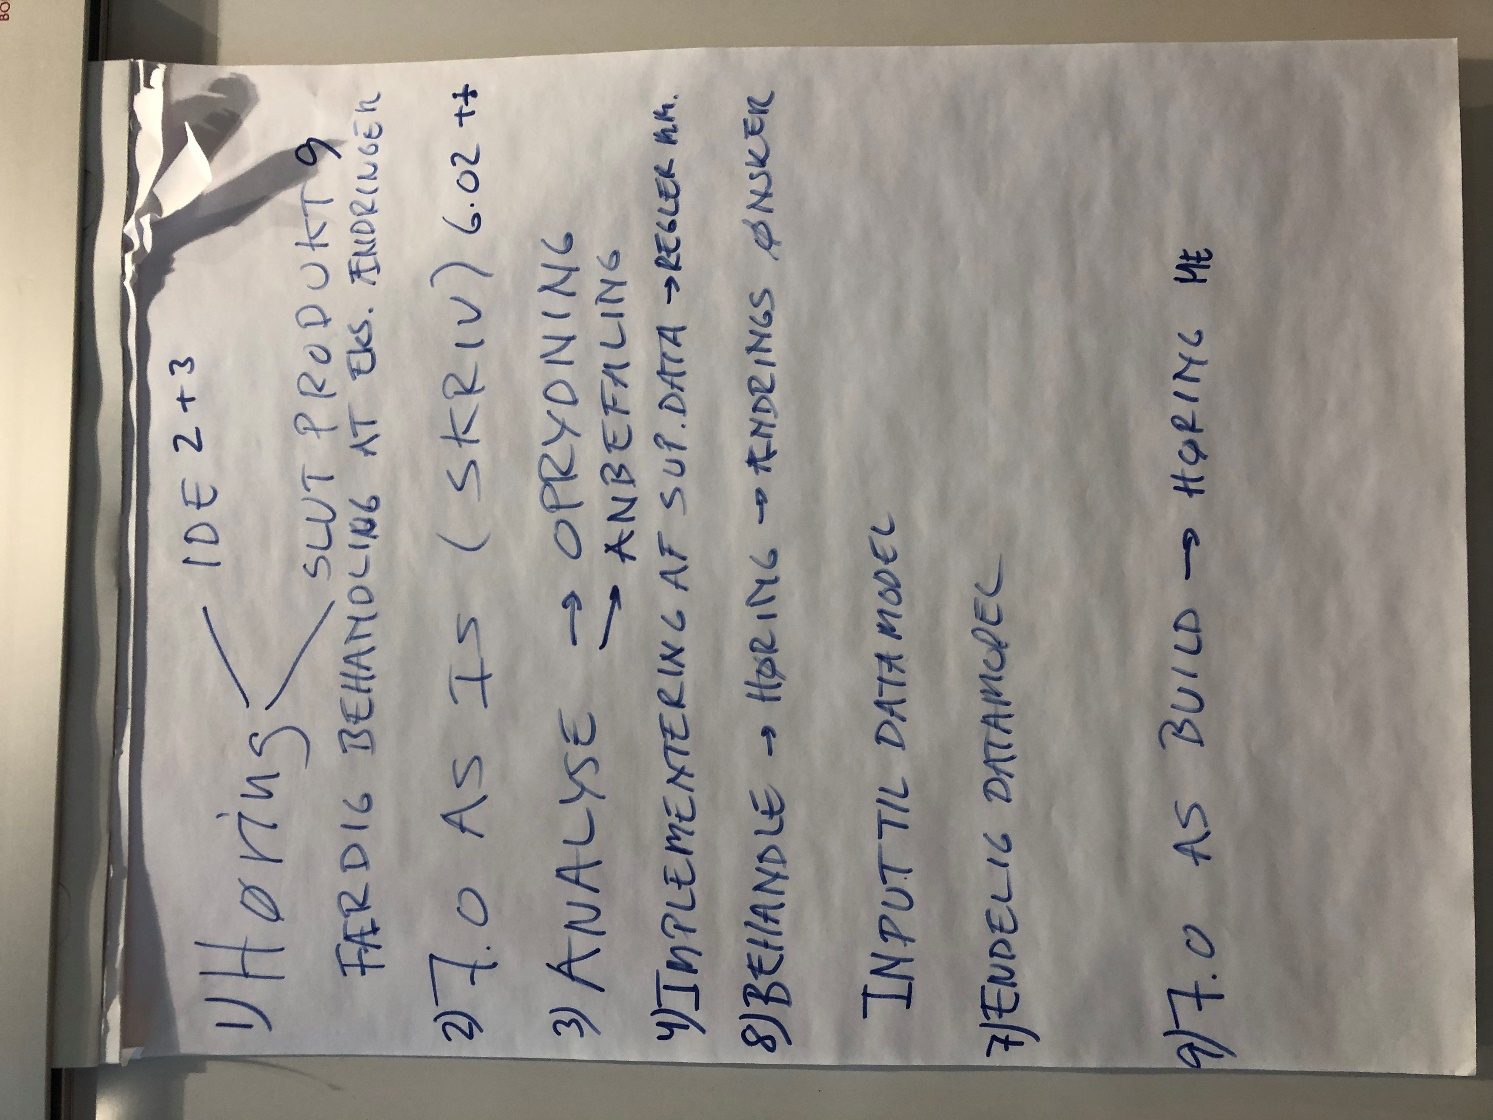 IDE 2+3
1) Høring
SLUT PRODUKT 9
FÆRDIG BEHANDLING AT EKS. ÆNDRINGER
2) 7.0 AS IS (SKRIV) 6.02 ++
3) ANALYSE → OPRYDNING
→ ANBEFALING
4) IMPLEMENTERING AF SUP. DATA → REGLER M.M.
8) BEHANDLE → HØRING → ÆNDRINGS ØNSKER
INPUT TIL DATAMODEL
7) ENDELIG DATAMODEL
9) 7.0 AS BUILD → HØRING